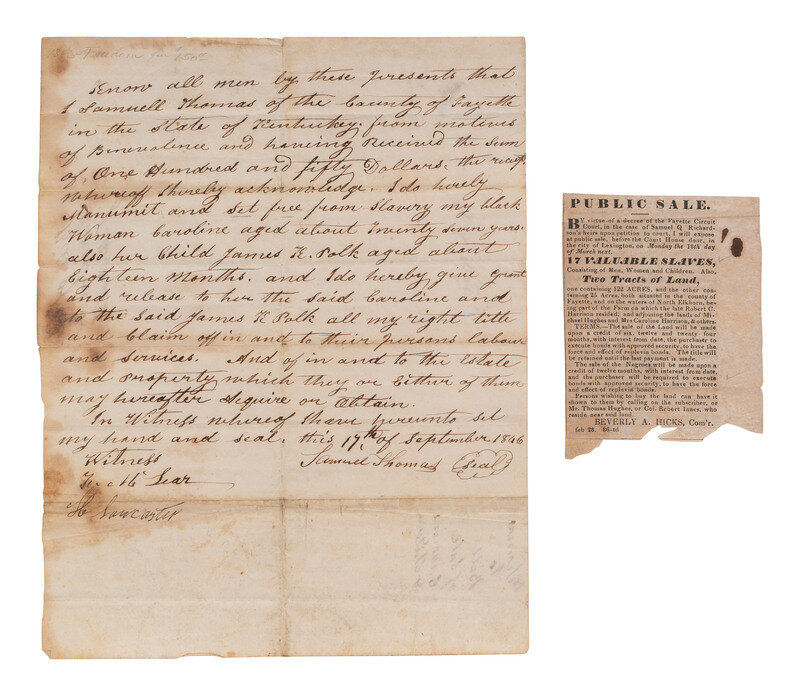 Know all men by these presents that
I Samuell Thomas of the County of Fayette
in the State of Kentuckey. from motives
of Benevolence and having Received the Sum
of One Hundred and fifty Dollars. the receipt
whereof I hereby acknowledge. I do hereby
Manumit and Set free from Slavery my black
Woman Caroline aged about Twenty Seven years.
also her Child James K. Polk aged about
Eighteen Months. and I do hereby give Grant
and release to her the said Caroline and
to the said James K Polk all my right title
and Claim of in and to their persons labour
and services. And of in and to the Estate
and property which they or Either of them
may hereafter Acquire or Obtain.
In Witness where of I have hereunto set
my hand and seal. this 17th of September 1846
Witness Samuel Thomas Seal
Lear
Lancaster
PUBLIC SALE.
BY virtue of a decree of the Fayette Circuit
Court, in the case of Samuel Q Richard-
son's heirs upon petition to court, I will expose
at public sale, before the Court House door, in
the city of Lexington, on Monday the 18th day
of March next.
17 VALUABLE SLAVES,
Consisting of Men, Women and Children. Also,
Two Tracts of Land,
one containing 122 ACRES, and the other con-
taining 25 Acres, both situated in the county of
Fayette, and on the waters of North Elkhorn, be-
ing part of the Farm on which the late Robert C.
Harrison resided; and adjoining the lands of Mi-
chael Hughes and Mrs Caroline Harrison, & others.
TERMS.—The sale of the Land will be made
upon a credit of six, twelve and twenty four
months, with interest from date, the purchaser to
execute bonds with approved security, to have the
force and effect of replevin bonds. The title will
be retained until the last payment is made.
The sale of the Negroes will be made upon a
credit of twelve months, with interest from date,
and the purchaser will be required to execute
bonds with approved security, to have the force
and effect of replevin bonds.
Persons wishing to buy the land can have it
shown to them by calling on the subscriber, or
Mr. Thomas Hughes, or Col. Robert Innes, who
reside near said land.
BEVERLY A. HICKS, Com'r.
feb 28, 86-td